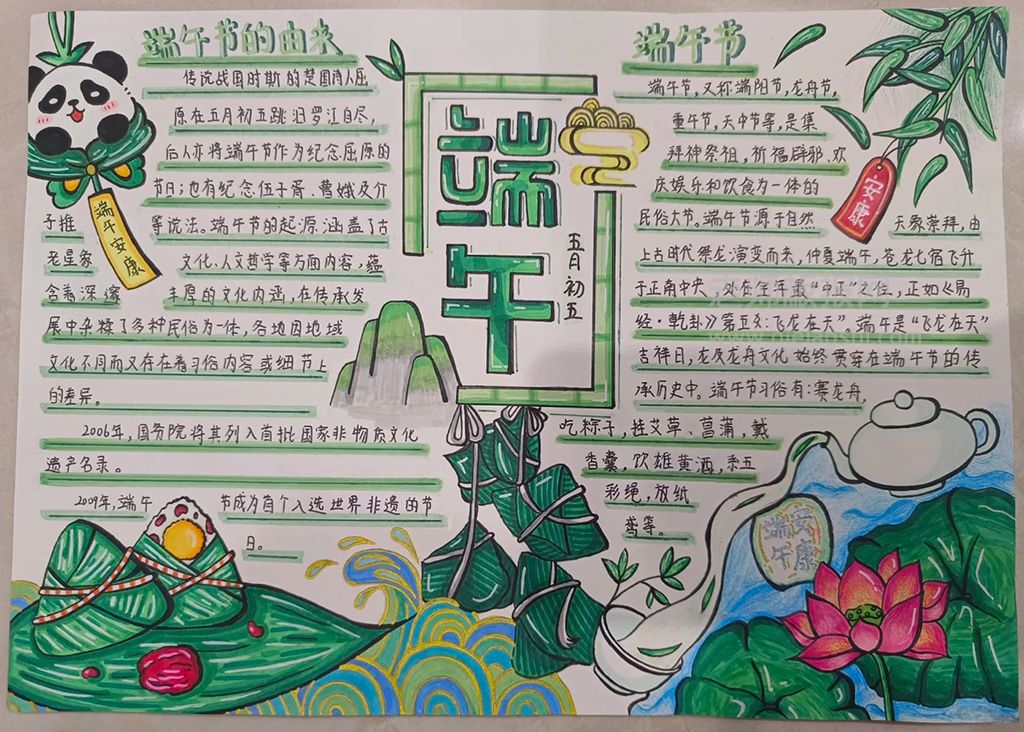 端午节的由来
传说战国时斯的楚国诗人屈
原在五月初五跳汨罗江自尽,
后人亦将端午节作为纪念屈原的
节日;也有纪念伍子胥、曹娥及介
子推
等说法。端午节的起源涵盖了古
老星象
文化、人文哲学等方面内容,蕴
含着深邃
丰厚的文化内涵,在传承发
展中杂糅了多种民俗为一体,各地因地域
文化不同而又存在着习俗内容或细节上
的差异。
2006年,国务院将其列入首批国家非物质文化
遗产名录。
2009年,端午
节成为首个入选世界非遗的节
日。
端午安康
端午
五月初五
端午节
端午节,又称端阳节,龙舟节,
重午节,天中节等,是集
拜神祭祖,祈福辟邪、欢
庆娱乐和饮食为一体的
民俗大节。端午节源于自然
天象崇拜,由
上古时代祭龙演变而来,仲夏端午,苍龙七宿飞升
于正南中央,处在全年最“中正”之位,正如《易
经·乾卦》第五爻:“飞龙在天”。端午是“飞龙在天”
吉祥日,龙及龙舟文化始终贯穿在端午节的传
承历史中。端午节习俗有:赛龙舟,
吃粽子,挂艾草、菖蒲,戴
香囊,饮雄黄酒,系五
彩绳,放纸
鸢等。
安康
端午安康